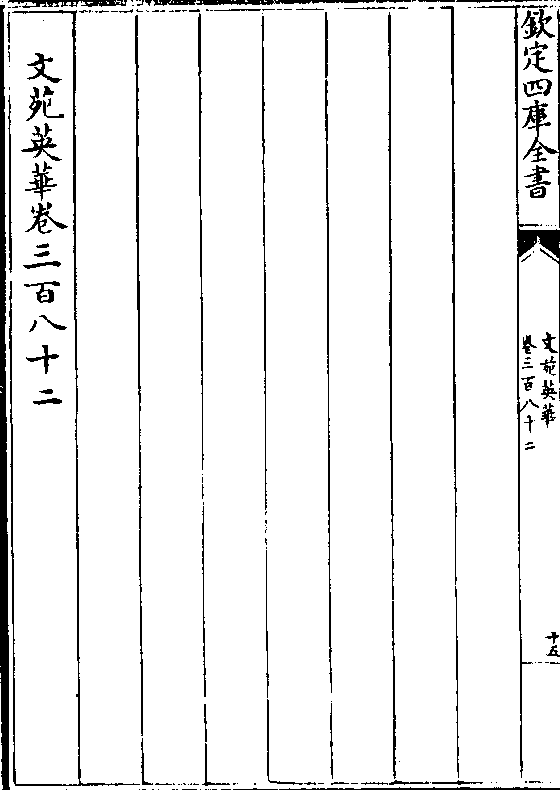 欽定四庫全書
文苑英華
卷三百八十二
十五
文苑英華卷三百八十二